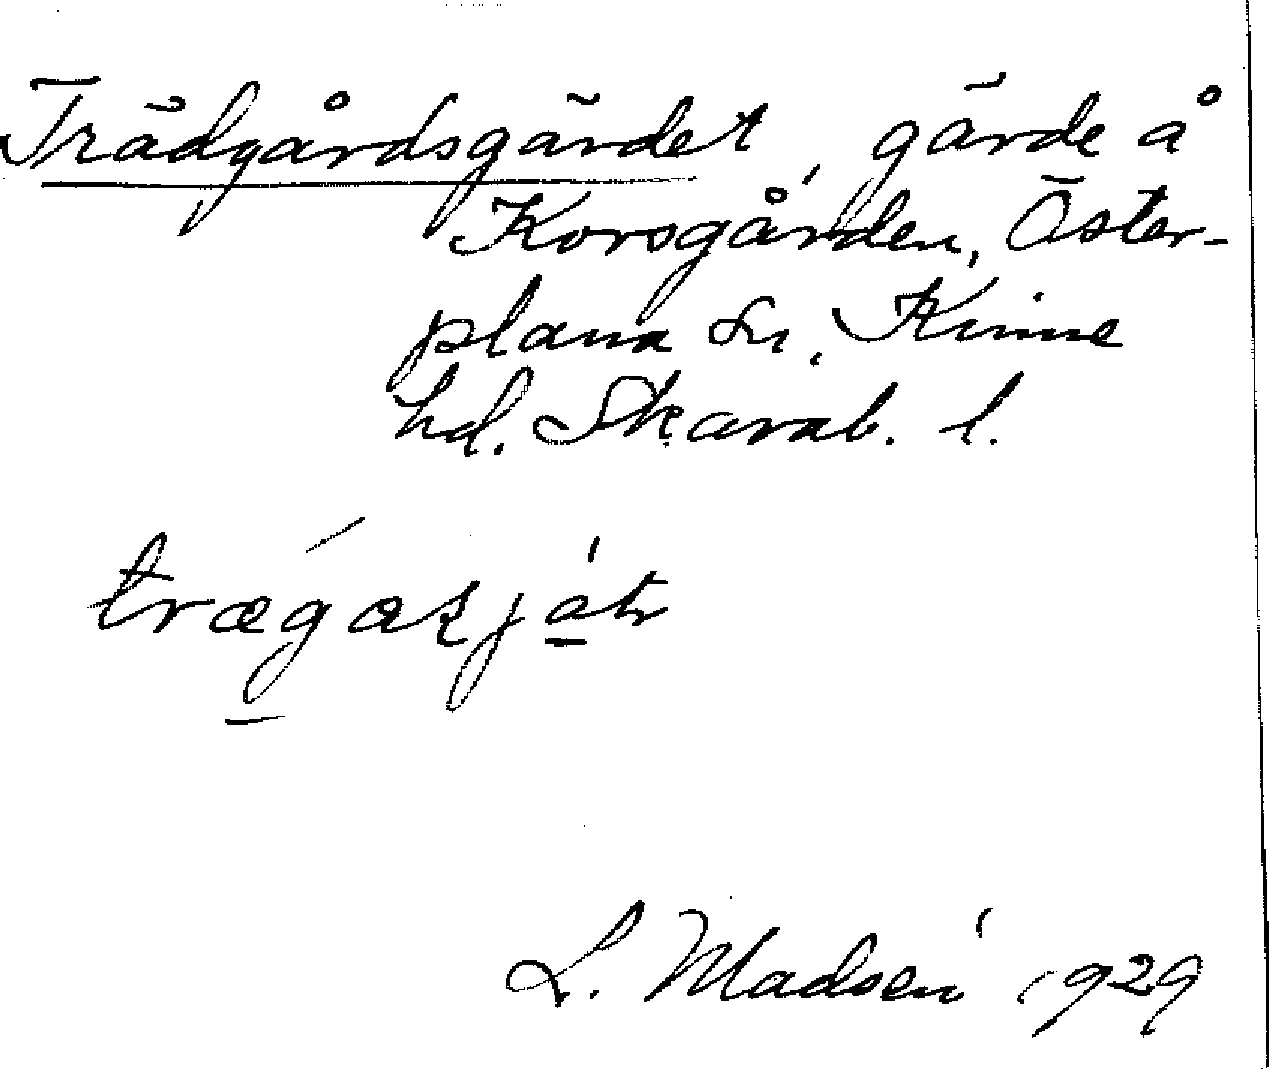 Trädgårdsgärdet, gärde å
Korsgården, Öster-
plana sn, Kinne
hd. Skarab. l.
L. Madsén 1929